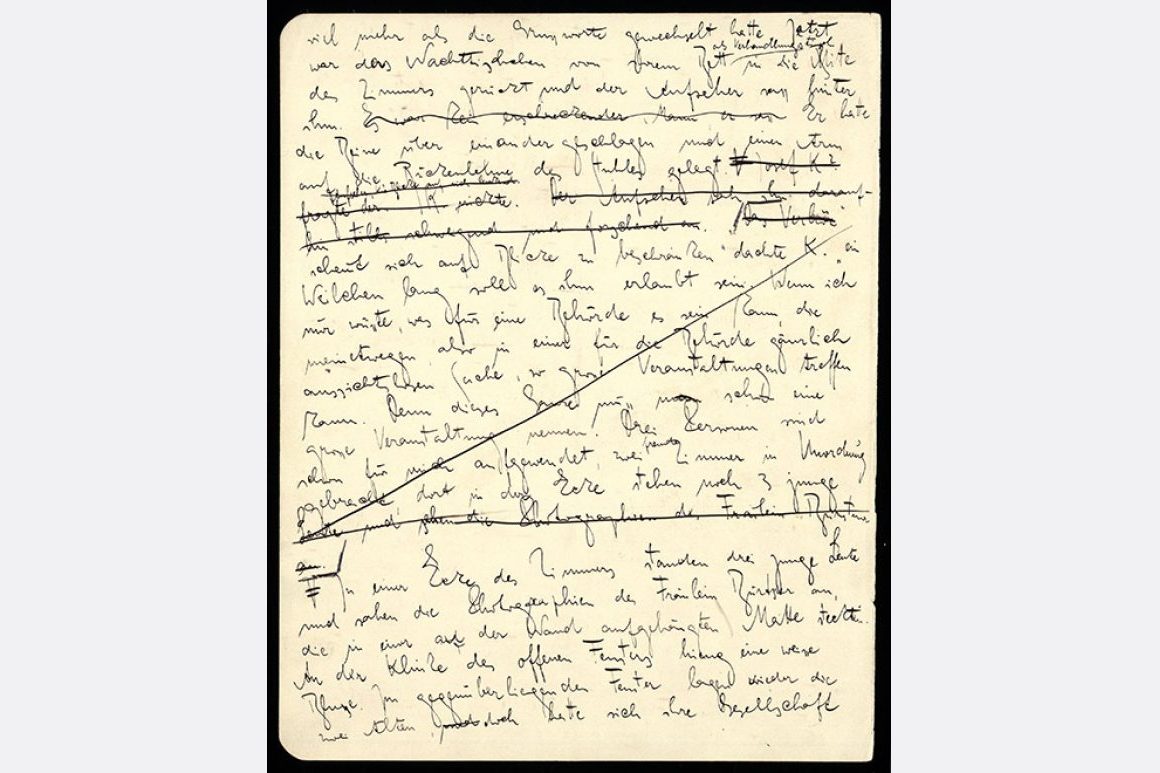 viel mehr als die Grussworte gewechselt hatte. Jetzt
als Verhandlungstisch
war das Nachttischchen von ihrem Bett in die Mitte
des Zimmers gerückt und der Aufseher sass hinter
ihm. Es war kein erschreckender Mann er Er hatte
die Beine über einander geschlagen und einen Arm
auf die Rückenlehne des Stuhles gelegt. Josef K?
fragte der K nickte. Der Aufseher sah ihn darauf-
hin still schweigend und forschend an. „Das Verhör
scheint sich auf Blicke zu beschränken" dachte K. „ein
Weilchen lang soll es ihm erlaubt sein. Wenn ich
nur wüsste, was für eine Behörde es sein kann, die
meinetwegen also in einer für die Behörde gänzlich
aussichtslosen Sache, so grosse Veranstaltungen treffen
kann. Denn dieses Ganze muss man schon eine
grosse Veranstaltung nennen. Drei Personen sind
fremde
schon für mich aufgewendet, zwei Zimmer in Unordnung
gebracht, dort in der Ecke stehen noch 3 junge
Leute und sehen die Photographien des Fräulein Bürstner
an.
In einer Ecke des Zimmers standen drei junge Leute
und sahen die Photographien des Fräulein Bürstner an,
die in einer auf der Wand aufgehängten Matte steckten.
An der Klinke des offenen Fensters hieng eine weisse
Bluse. Im gegenüberliegenden Fenster lagen wieder die
zwei Alten, und doch hatte sich ihre Gesellschaft